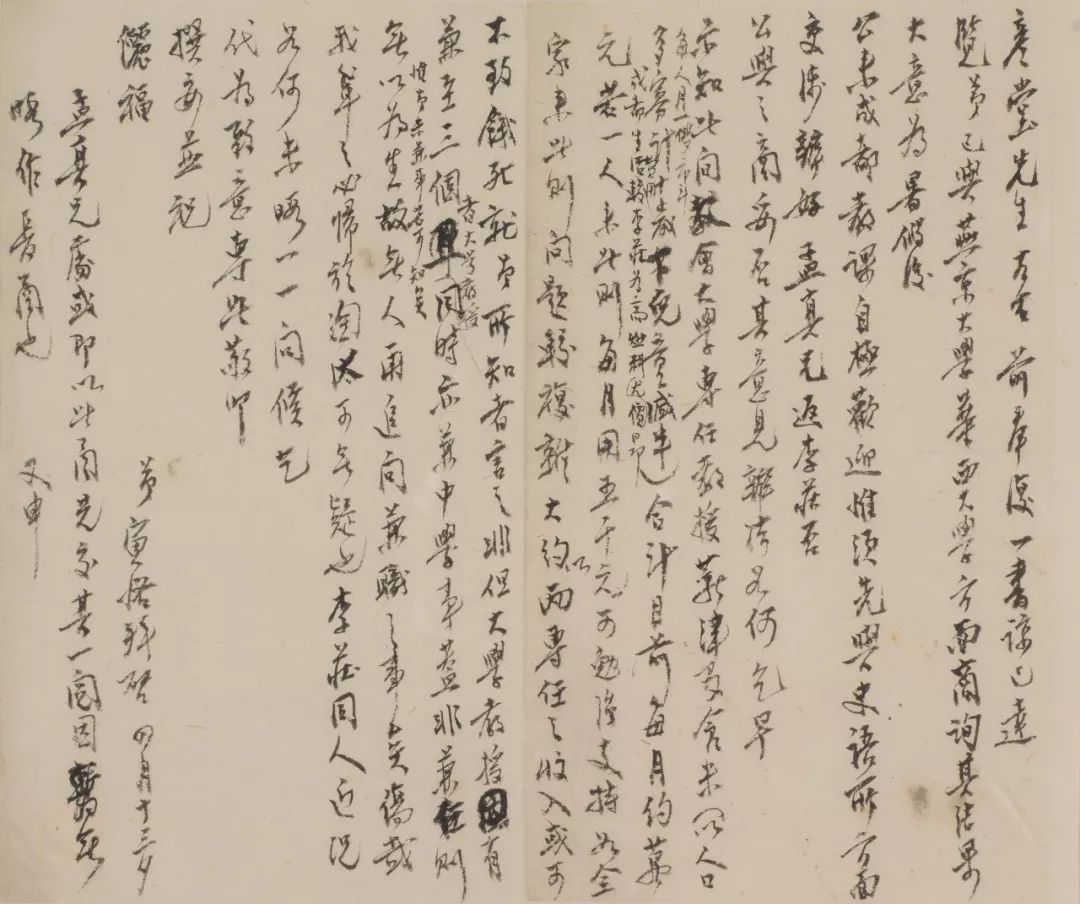 彥堂先生左右前奉復一書諒已達
覽弟已與燕京大學華西大學方面商詢其結果
大意為暑假後
公來成都教課自極歡迎惟須先與史語所方面
交涉辦好孟真兄返李莊否
公與之商妥否其意見辦法若何乞早
示知此間教會大學專任教授薪津及食米(以人口
每人月一擔二斗
多寡計
成都生活較李莊為高燃料尤價昂
合計目前每月約萬
元若一人來此則每月用五千元可勉強支持如全
家來此則問題較複雜大約以兩專任之收入或可
不致餓死就弟所知者言之非但大學教授有
兼至三個者大學教授同時亦兼中學事蓋非兼任則
無以為生故無人再追問兼職之事矣傷哉
我輩之必歸於淘汰可無疑也李莊同人近況
如何未暇一一問候乞
代為致意專此敬叩
撰安並祝
儷福
弟寅恪拜啓四月十三夕
孟真兄處或即以此函先交其一閱因暫無
暇作長函也 又申